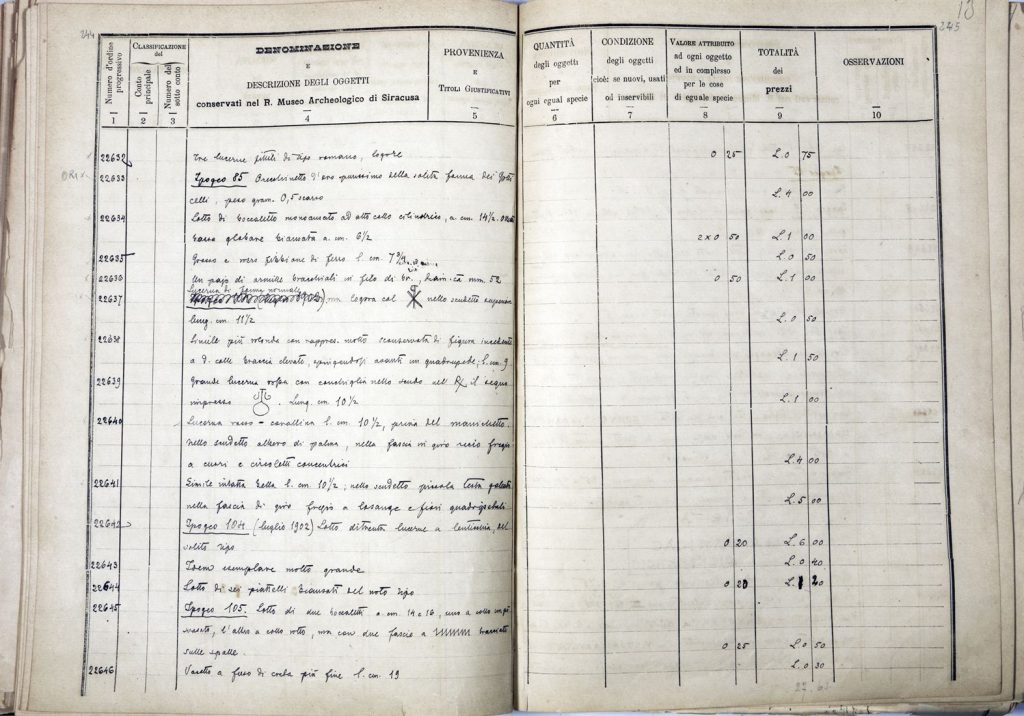 244
Numero d'ordine progressivo
CLASSIFICAZIONE del
Conto principale
Numero del sotto conto
DENOMINAZIONE
E
DESCRIZIONE DEGLI OGGETTI
conservati nel R. Museo Archeologico di Siracusa
PROVENIENZA
E
TITOLI GIUSTIFICATIVI
1 2 3 4 5
22632 Tre lucerne fittili di tipo romano, logore
22633 Ipogeo 85 Orecchinetto d'oro purissimo della solita forma dei
celli, peso gram. 0,5 scarso
22634 Lotto di boccaletto monoansato ad alto collo cilindrico, a cm. 14½.
vaso globare biansata a cm. 6½
22635 Grosso e mezzo fibbione di ferro l. cm. 7
22636 Un pajo di armille bracchiali in filo di br., diam. cã mm. 52
Lucerna di forma normale
22637 ma logora col nello scudetto
lung. cm. 11½
22638 Simile più rotonda con rappres. molto sconservata di figura incedente
a d. colle braccia elevate, avanti un quadrupede; l. cm. 9
22639 Grande lucerna rossa con conchiglia nello scudo nel il segno
impresso . Lung. cm. 10½
22640 Lucerna rosso-corallina l. cm. 10½, priva del manichetto.
nello scudetto albero di palma, nella fascia in giro ricco fregio
a cuori e circoletti concentrici
22641 Simile intatta bella l. cm. 10½; nello scudetto piccola testa galeata
nella fascia di giro fregio a losange e fiori quadripetali
22642 Ipogeo 104 (luglio 1902) Lotto di trenta lucerne a lenticchia, del
solito tipo
22643 Idem esemplare molto grande
22644 Lotto di sei piattelli biansati del noto tipo
22645 Ipogeo 105. Lotto di due boccaletti a cm. 14 e 16, uno a collo
, l'altro a collo rotto, ma con due fascie a
sulle spalle.
22646 Vasetto a fuso di creta più fine l. cm. 19
13
245
QUANTITÀ
degli oggetti
per
ogni egual specie
CONDIZIONE
degli oggetti
cioè: se nuovi, usati
od inservibili
VALORE ATTRIBUITO
ad ogni oggetto
ed in complesso
per le cose
di eguale specie
TOTALITÀ
dei
prezzi
OSSERVAZIONI
6 7 8 9 10
0 25 L. 0 75
L. 4 00
2 x 0 50 L. 1 00
L. 0 50
0 50 L. 1 00
L. 0 50
L. 1 50
L. 1 00
L. 4 00
L. 5 00
0 20 L. 6 00
L. 0 40
0 20 L. 1 20
0 25 L. 0 50
L. 0 30